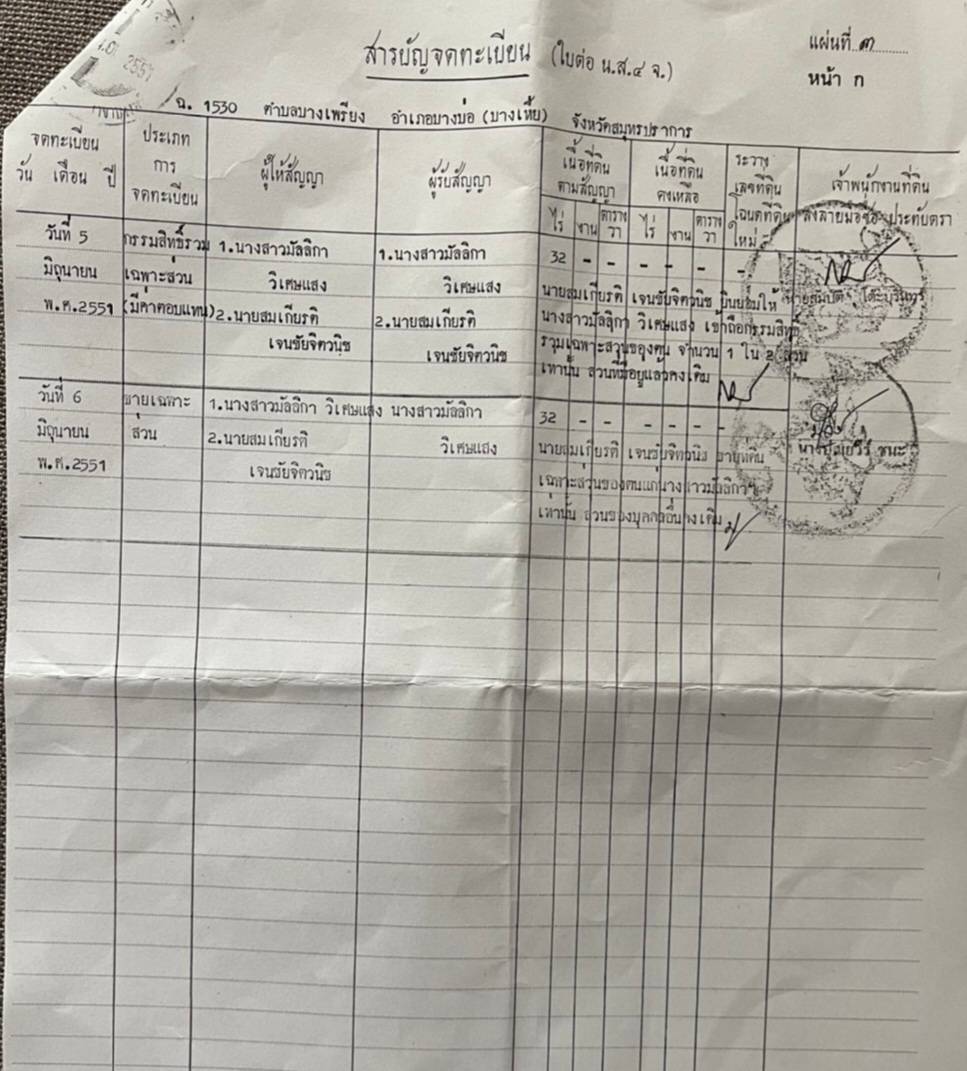 สารบัญจดทะเบียน (ใบต่อ น.ส.๔ จ.)
แผ่นที่ ๓
หน้า ก
2551
ฉ. 1530 ตำบลบางเพรียง อำเภอบางบ่อ (บางเหี้ย) จังหวัดสมุทรปราการ
จดทะเบียน
วัน เดือน ปี
ประเภท
การ
จดทะเบียน
ผู้ให้สัญญา
ผู้รับสัญญา
เนื้อที่ดิน
ตามสัญญา
ไร่ งาน ตาราง
วา
เนื้อที่ดิน
คงเหลือ
ไร่ งาน ตาราง
วา
ระวาง
เลขที่ดิน
โฉนดที่ดิน
ใหม่
เจ้าพนักงานที่ดิน
ลงลายมือชื่อ ประทับตรา
วันที่ 5
มิถุนายน
พ.ศ.2551
กรรมสิทธิ์รวม
เฉพาะส่วน
(มีค่าตอบแทน)
1.นางสาวมัลลิกา
วิเศษแสง
2.นายสมเกียรติ
เจนชัยจิตวนิช
1.นางสาวมัลลิกา
วิเศษแสง
2.นายสมเกียรติ
เจนชัยจิตวนิช
32 - - - - - -
นายสมเกียรติ เจนชัยจิตวนิช ยินยอมให้
นางสาวมัลลิกา วิเศษแสง เข้าถือกรรมสิทธิ์
รวมเฉพาะส่วนของตน จำนวน 1 ใน 2 ส่วน
เท่านั้น ส่วนที่มีอยู่แล้วคงเดิม
วันที่ 6
มิถุนายน
พ.ศ.2551
ขายเฉพาะ
ส่วน
1.นางสาวมัลลิกา วิเศษแสง
2.นายสมเกียรติ
เจนชัยจิตวนิช
นางสาวมัลลิกา
วิเศษแสง
32 - - - - - -
นายสมเกียรติ เจนชัยจิตวนิช ขายที่ดิน
เฉพาะส่วนของตนแก่นางสาวมัลลิกาฯ
เท่านั้น ส่วนของบุคคลอื่นคงเดิม